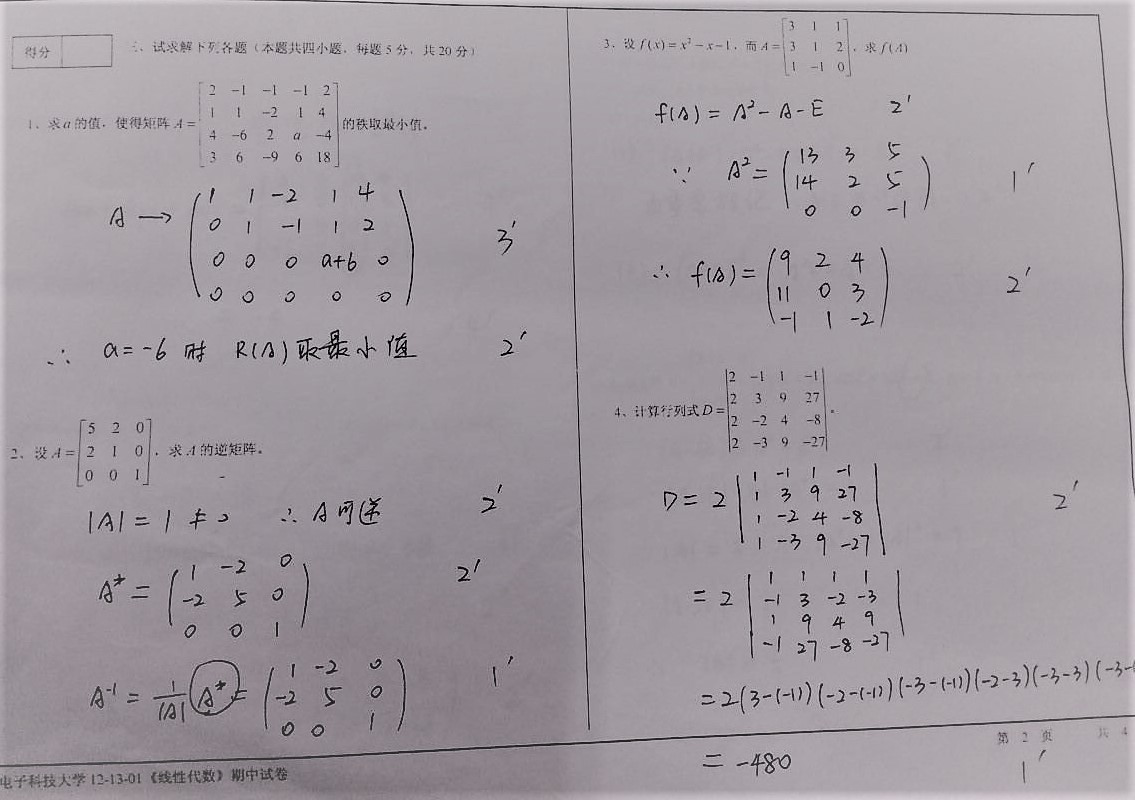 得分
三、试求解下列各题（本题共四小题，每题5分，共20分）
1、求a的值，使得矩阵A=[2 -1 -1 -1 2
1 1 -2 1 4
4 -6 2 a -4
3 6 -9 6 18]的秩取最小值。
A → (1 1 -2 1 4
0 1 -1 1 2
0 0 0 a+6 0
0 0 0 0 0) 3'
∴ a=-6 时 R(A)取最小值 2'
2、设A=[5 2 0
2 1 0
0 0 1]，求A的逆矩阵。
|A| = 1 ≠ 0 ∴ A可逆 2'
A* = (1 -2 0
-2 5 0
0 0 1) 2'
A⁻¹ = 1/|A| A* = (1 -2 0
-2 5 0
0 0 1) 1'
电子科技大学12-13-01《线性代数》期中试卷
3、设f(x)=x²-x-1，而A=[3 1 1
3 1 2
1 -1 0]，求f(A)
f(A) = A² - A - E 2'
∵ A² = (13 3 5
14 2 5
0 0 -1) 1'
∴ f(A) = (9 2 4
11 0 3
-1 1 -2) 2'
4、计算行列式D=|2 -1 1 -1
2 3 9 27
2 -2 4 -8
2 -3 9 -27|。
D = 2 |1 -1 1 -1
1 3 9 27
1 -2 4 -8
1 -3 9 -27| 2'
= 2 |1 1 1 1
-1 3 -2 -3
1 9 4 9
-1 27 -8 -27|
= 2(3-(-1))(-2-(-1))(-3-(-1))(-2-3)(-3-3)(-3-
= -480 1'
第 2 页 共 4